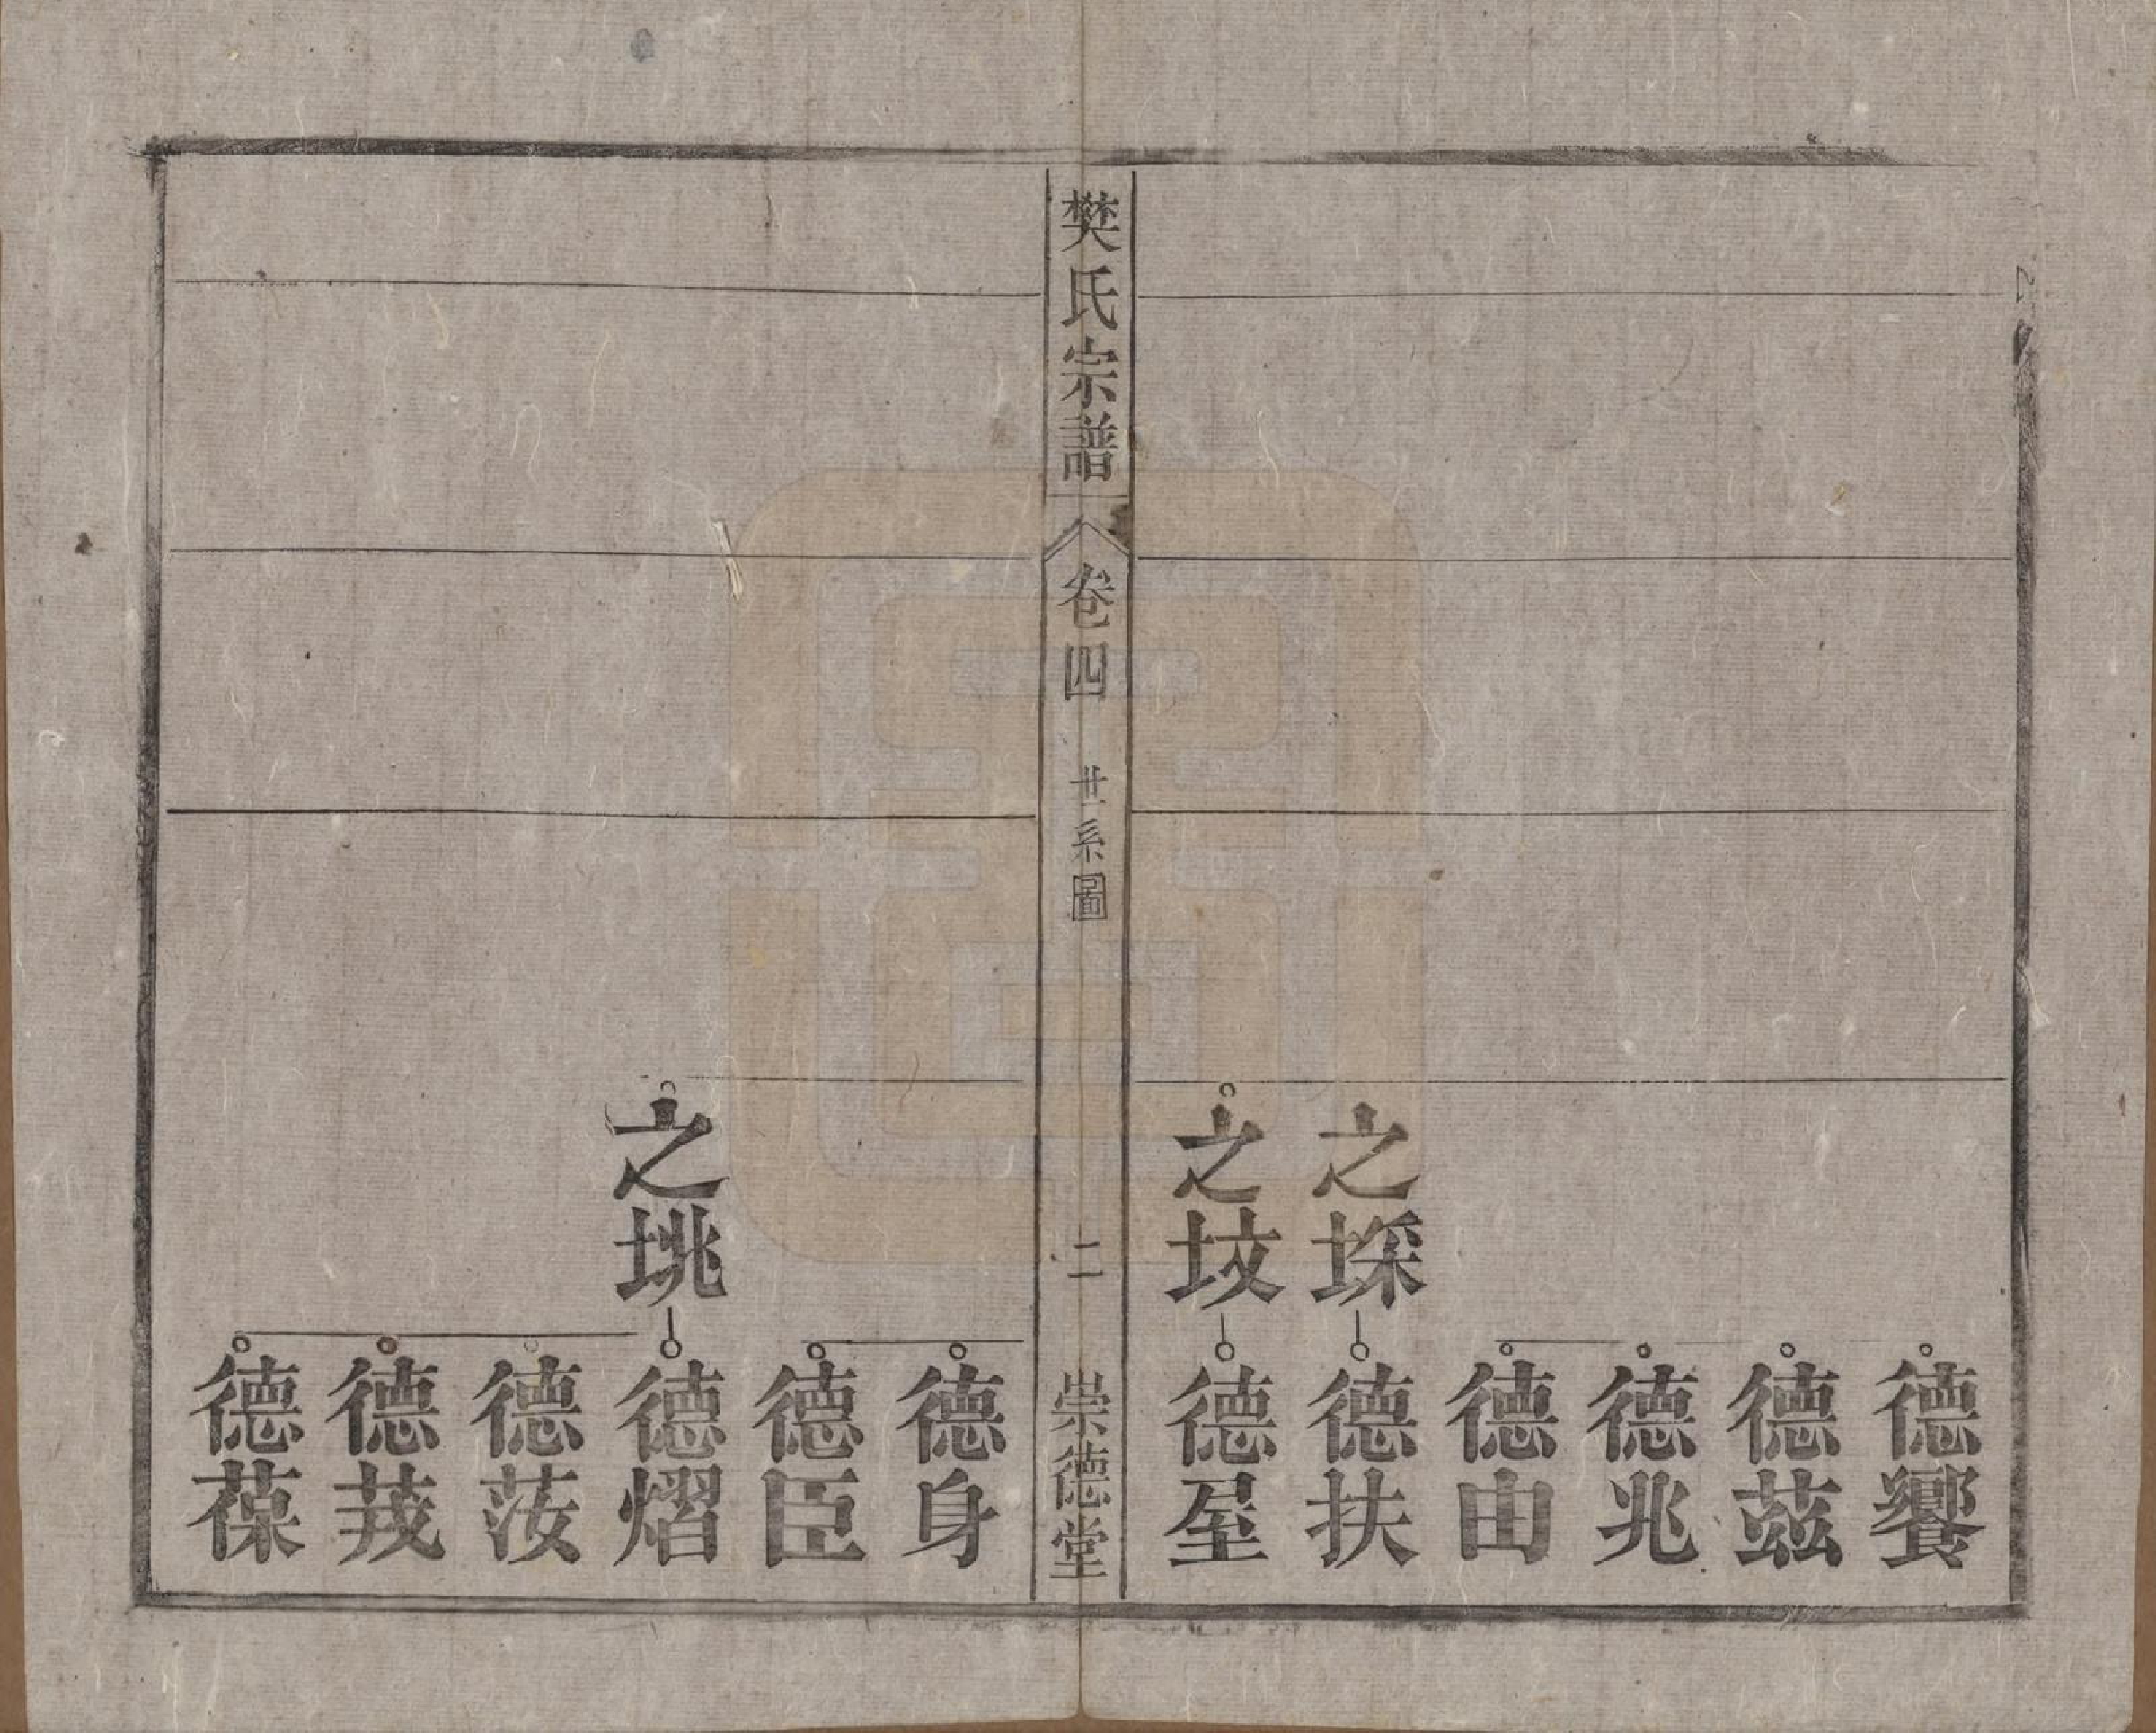 德饗
德茲
德兆
德由
之埰
德扶
之𡉏
德垕
樊氏宗譜
卷四
世系圖
二
崇德堂
德身
德臣
之垗
德熠
德茷
德葆